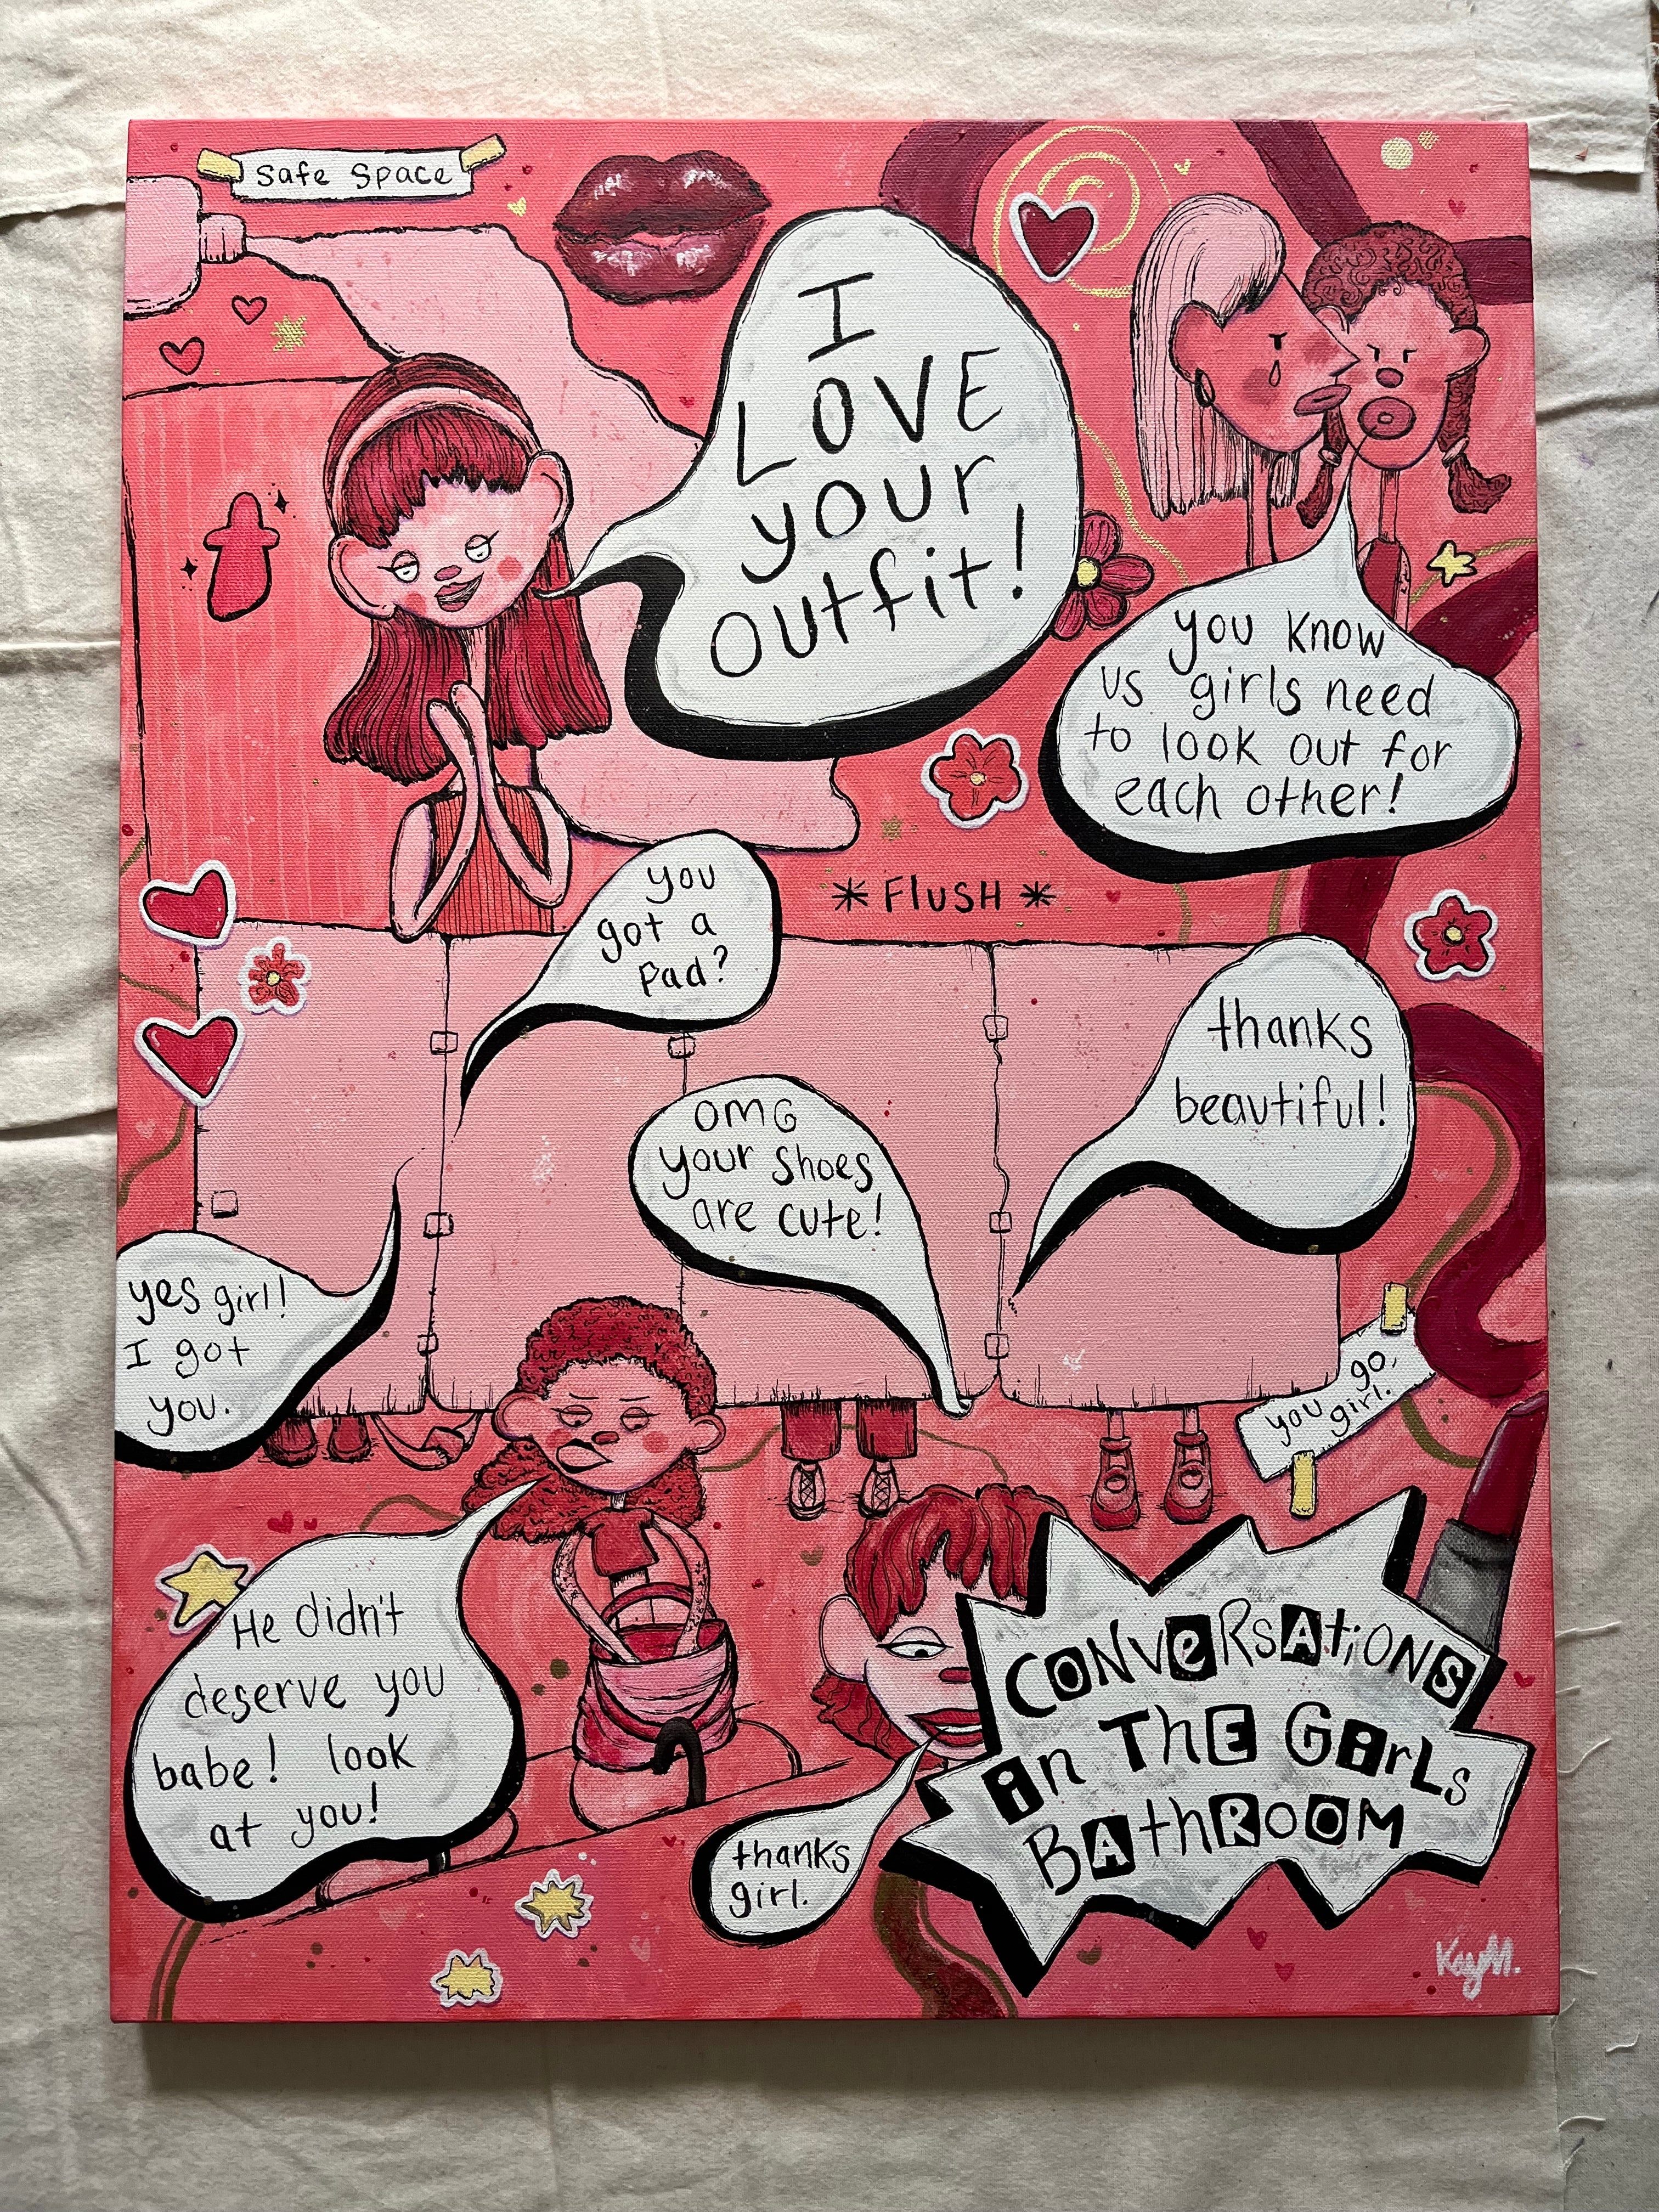 Safe Space
I
LOVE
your
outfit!
you know
us girls need
to look out for
each other!
you
got a
pad?
* FLUSH *
thanks
beautiful!
OMG
your shoes
are cute!
yes girl!
I got
you.
you go,
girl.
He didn't
deserve you
babe! look
at you!
thanks
girl.
CONVeRsAtiONS
in THE GirLs
BAthROOM
KayM.